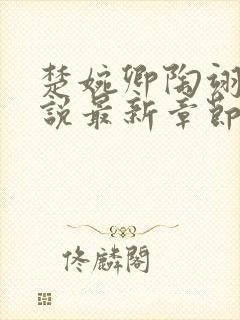 楚婉卿陶翊
說最新章節
佟麟閣